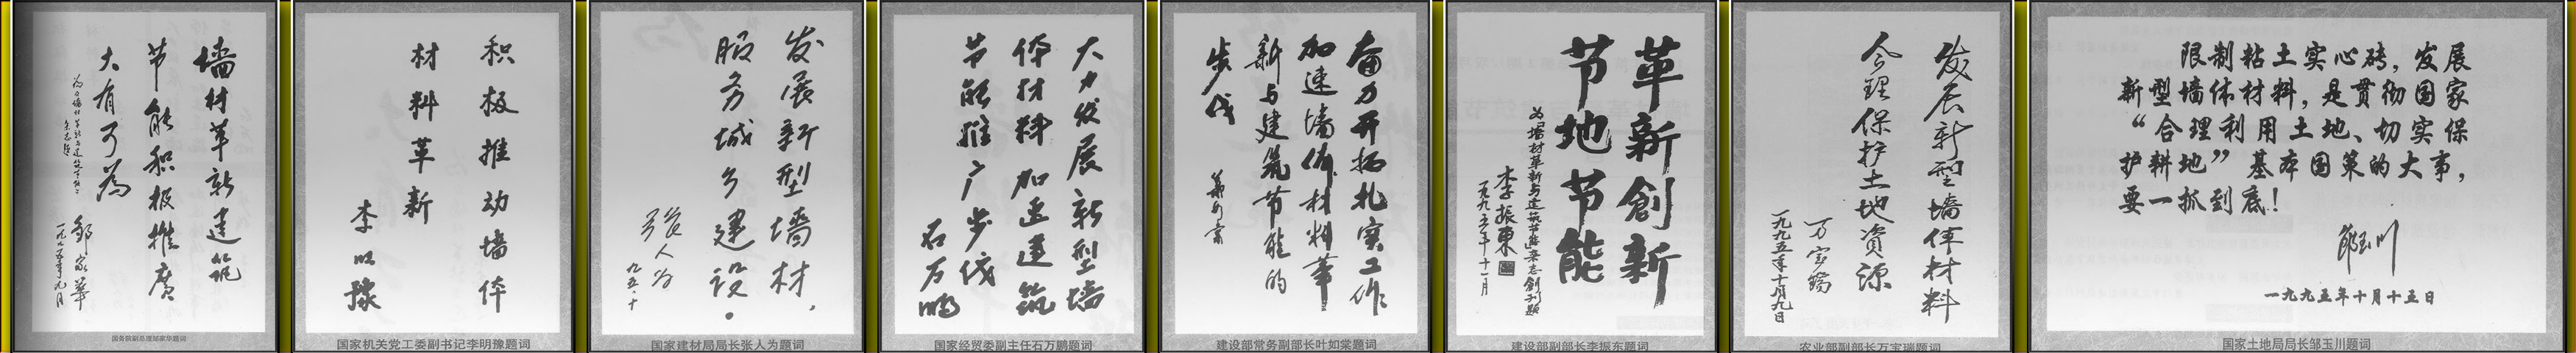 墙材革新建筑
节能积极推廣
大有可為
为《墙材革新与建筑节能》
杂志题
邹家華
一九九五年九月
国务院副总理邹家华题词
积极推动墙体
材料革新
李明豫
国家机关党工委副书记李明豫题词
发展新型墙材，
服务城乡建设。
张人为
九五·十
国家建材局局长张人为题词
大力发展新型墙
体材料加速建筑
节能推广步伐
石万鹏
国家经贸委副主任石万鹏题词
奋力开拓扎实工作
加速墙体材料革
新与建筑节能的
步伐
葉如棠
建设部常务副部长叶如棠题词
革新創新
节地节能
为墙材革新与建筑节能杂志創刊题
李振東
一九九五年十一月
建设部副部长李振东题词
发展新型墙体材料
合理保护土地資源
万宝瑞
一九九五年十月九日
农业部副部长万宝瑞题词
限制粘土实心砖，发展
新型墙体材料，是贯彻国家
“合理利用土地、切实保
护耕地”基本国策的大事，
要一抓到底！
邹玉川
一九九五年十月十五日
国家土地局局长邹玉川题词